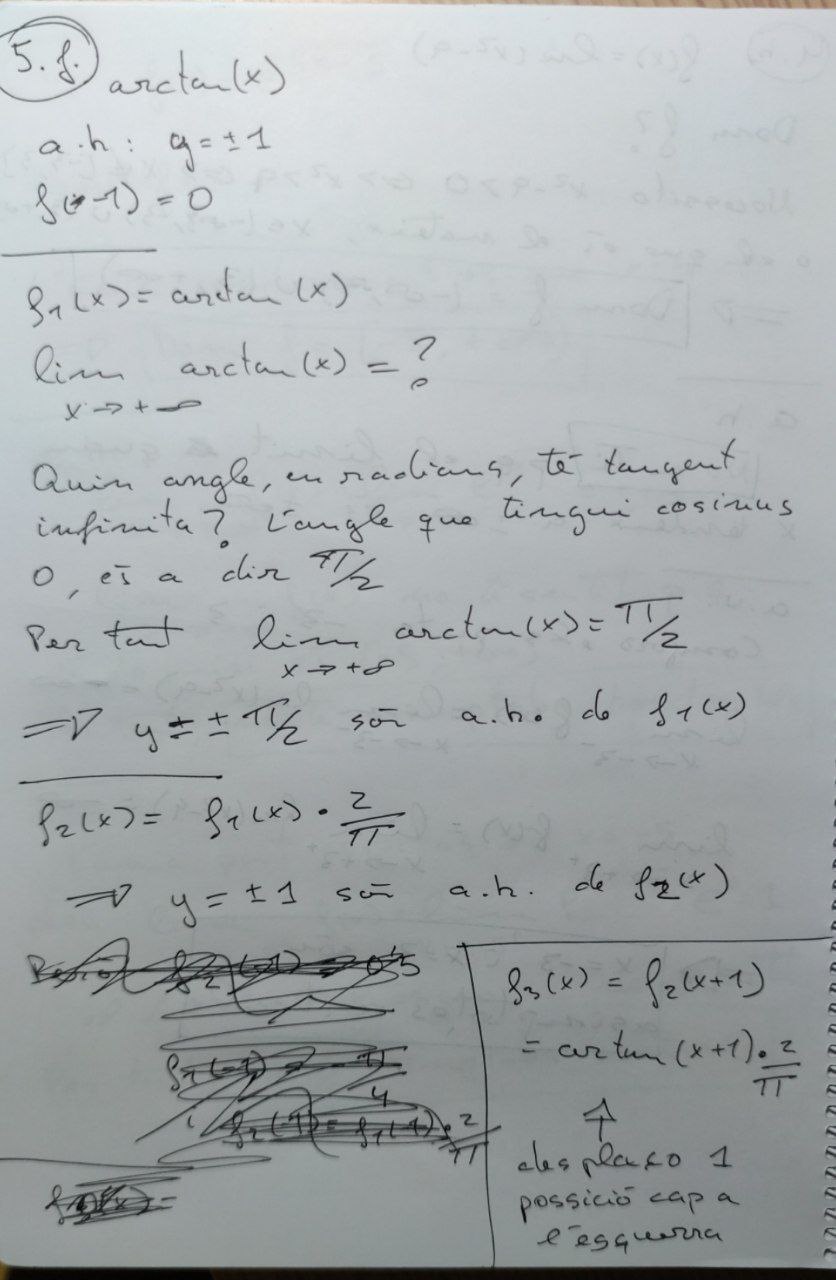 5.f. arctan(x)
a.h: y = ±1
f(-1) = 0
f₁(x) = arctan(x)
lim arctan(x) = ?
x → +∞
Quin angle, en radians, té tangent
infinita? L'angle que tingui cosinus
0, és a dir π/2
Per tant lim arctan(x) = π/2
x → +∞
⇒ y = ± π/2 són a.h. de f₁(x)
f₂(x) = f₁(x) · 2/π
⇒ y = ±1 són a.h. de f₂(x)
f₃(x) = f₂(x+1)
= arctan(x+1) · 2/π
↑
desplaço 1
possició cap a
l'esquerra